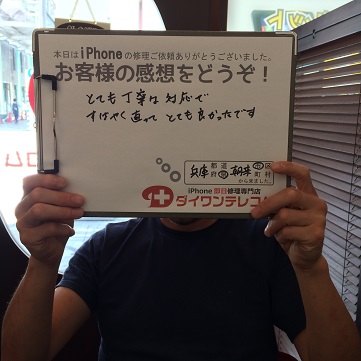 本日はiPhoneの修理ご依頼ありがとうございました。
お客様の感想をどうぞ！
とても丁寧な対応で
すばやく直って とても良かったです
兵庫 都道府県 朝来 市区町村
から来ました。
iPhone 即日修理専門店
ダイワンテレコム